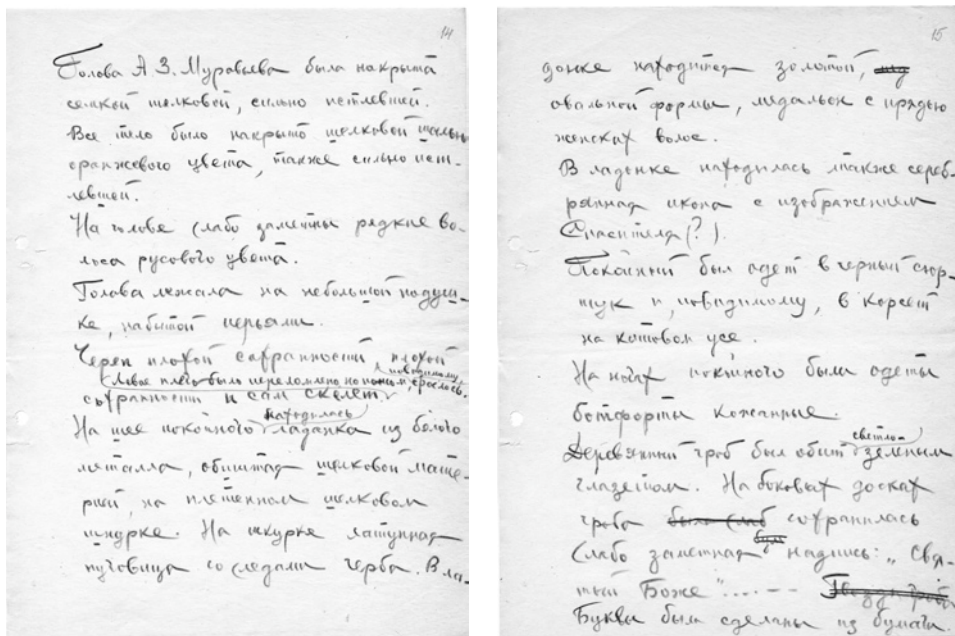 14
Голова А. З. Муравьева была накрыта
сеткой шелковой, сильно истлевшей.
Все тело было накрыто шелковой шалью
оранжевого цвета, также сильно ист-
левшей.
На голове слабо заметны редкие во-
лоса русового цвета.
Голова лежала на небольшой подуш-
ке, набитой перьями.
Череп плохой сохранности, плохой
(Левое плечо было переломлено, но потом, повидимому, срослось.
сохранности и сам скелет.
На шее покойного находилась ладанка из белого
металла, обшитая шелковой мате-
рией, на плетенном шелковом
шнурке. На шнурке латунная
пуговица со следами герба. В ла-
15
донке находится золотой,
овальной формы, медальон с прядью
женских волос.
В ладонке находилась также сереб-
рянная икона с изображением
Спасителя (?).
Покойный был одет в черный сюр-
тук и, повидимому, в корсет
на китовом усе.
На ногах покойного были одеты
ботфорты кожанные.
Деревянный гроб был обит светло-зеленым
глазетом. На боковых досках
гроба было слаб сохранилась
слабо заметная надпись: „Свя-
тый Боже"....--
Буквы были сделаны из бумаги.